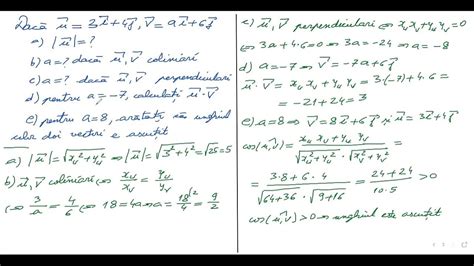 Dacă u⃗ = 3i⃗+4j⃗, v⃗ = ai⃗+6j⃗
a) |u⃗|=?
b) a=? dacă u⃗, v⃗ coliniari
c) a=? dacă u⃗, v⃗ perpendiculari
d) pentru a=-7, calculați u⃗·v⃗
e) pentru a=8, arătați că unghiul
celor doi vectori e ascuțit
a) |u⃗|=√(x_u²+y_u²) ⇔ |u⃗|=√(3²+4²)=√25=5
b) u⃗, v⃗ coliniari ⇔ x_u/x_v = y_u/y_v
⇔ 3/a = 4/6 ⇔ 18=4a ⇔ a = 18/4 ⁽² = 9/2
c) u⃗, v⃗ perpendiculari ⇔ x_u x_v + y_u y_v = 0
⇔ 3a+4·6=0 ⇔ 3a=-24 ⇔ a=-8
d) a=-7 ⇔ v⃗ = -7i⃗+6j⃗
u⃗·v⃗ = x_u x_v + y_u y_v = 3·(-7)+4·6 =
= -21+24 = 3
e) a=8 ⇔ v⃗ = 8i⃗+6j⃗ și u⃗ = 3i⃗+4j⃗
cos(u⃗,v⃗) = (x_u x_v + y_u y_v)/(√(x_u²+y_u²)·√(x_v²+y_v²)) =
= (3·8+6·4)/(√(64+36)·√(9+16)) = (24+24)/(10·5) > 0
cos(u⃗,v⃗) > 0 ⇔ unghiul este ascuțit